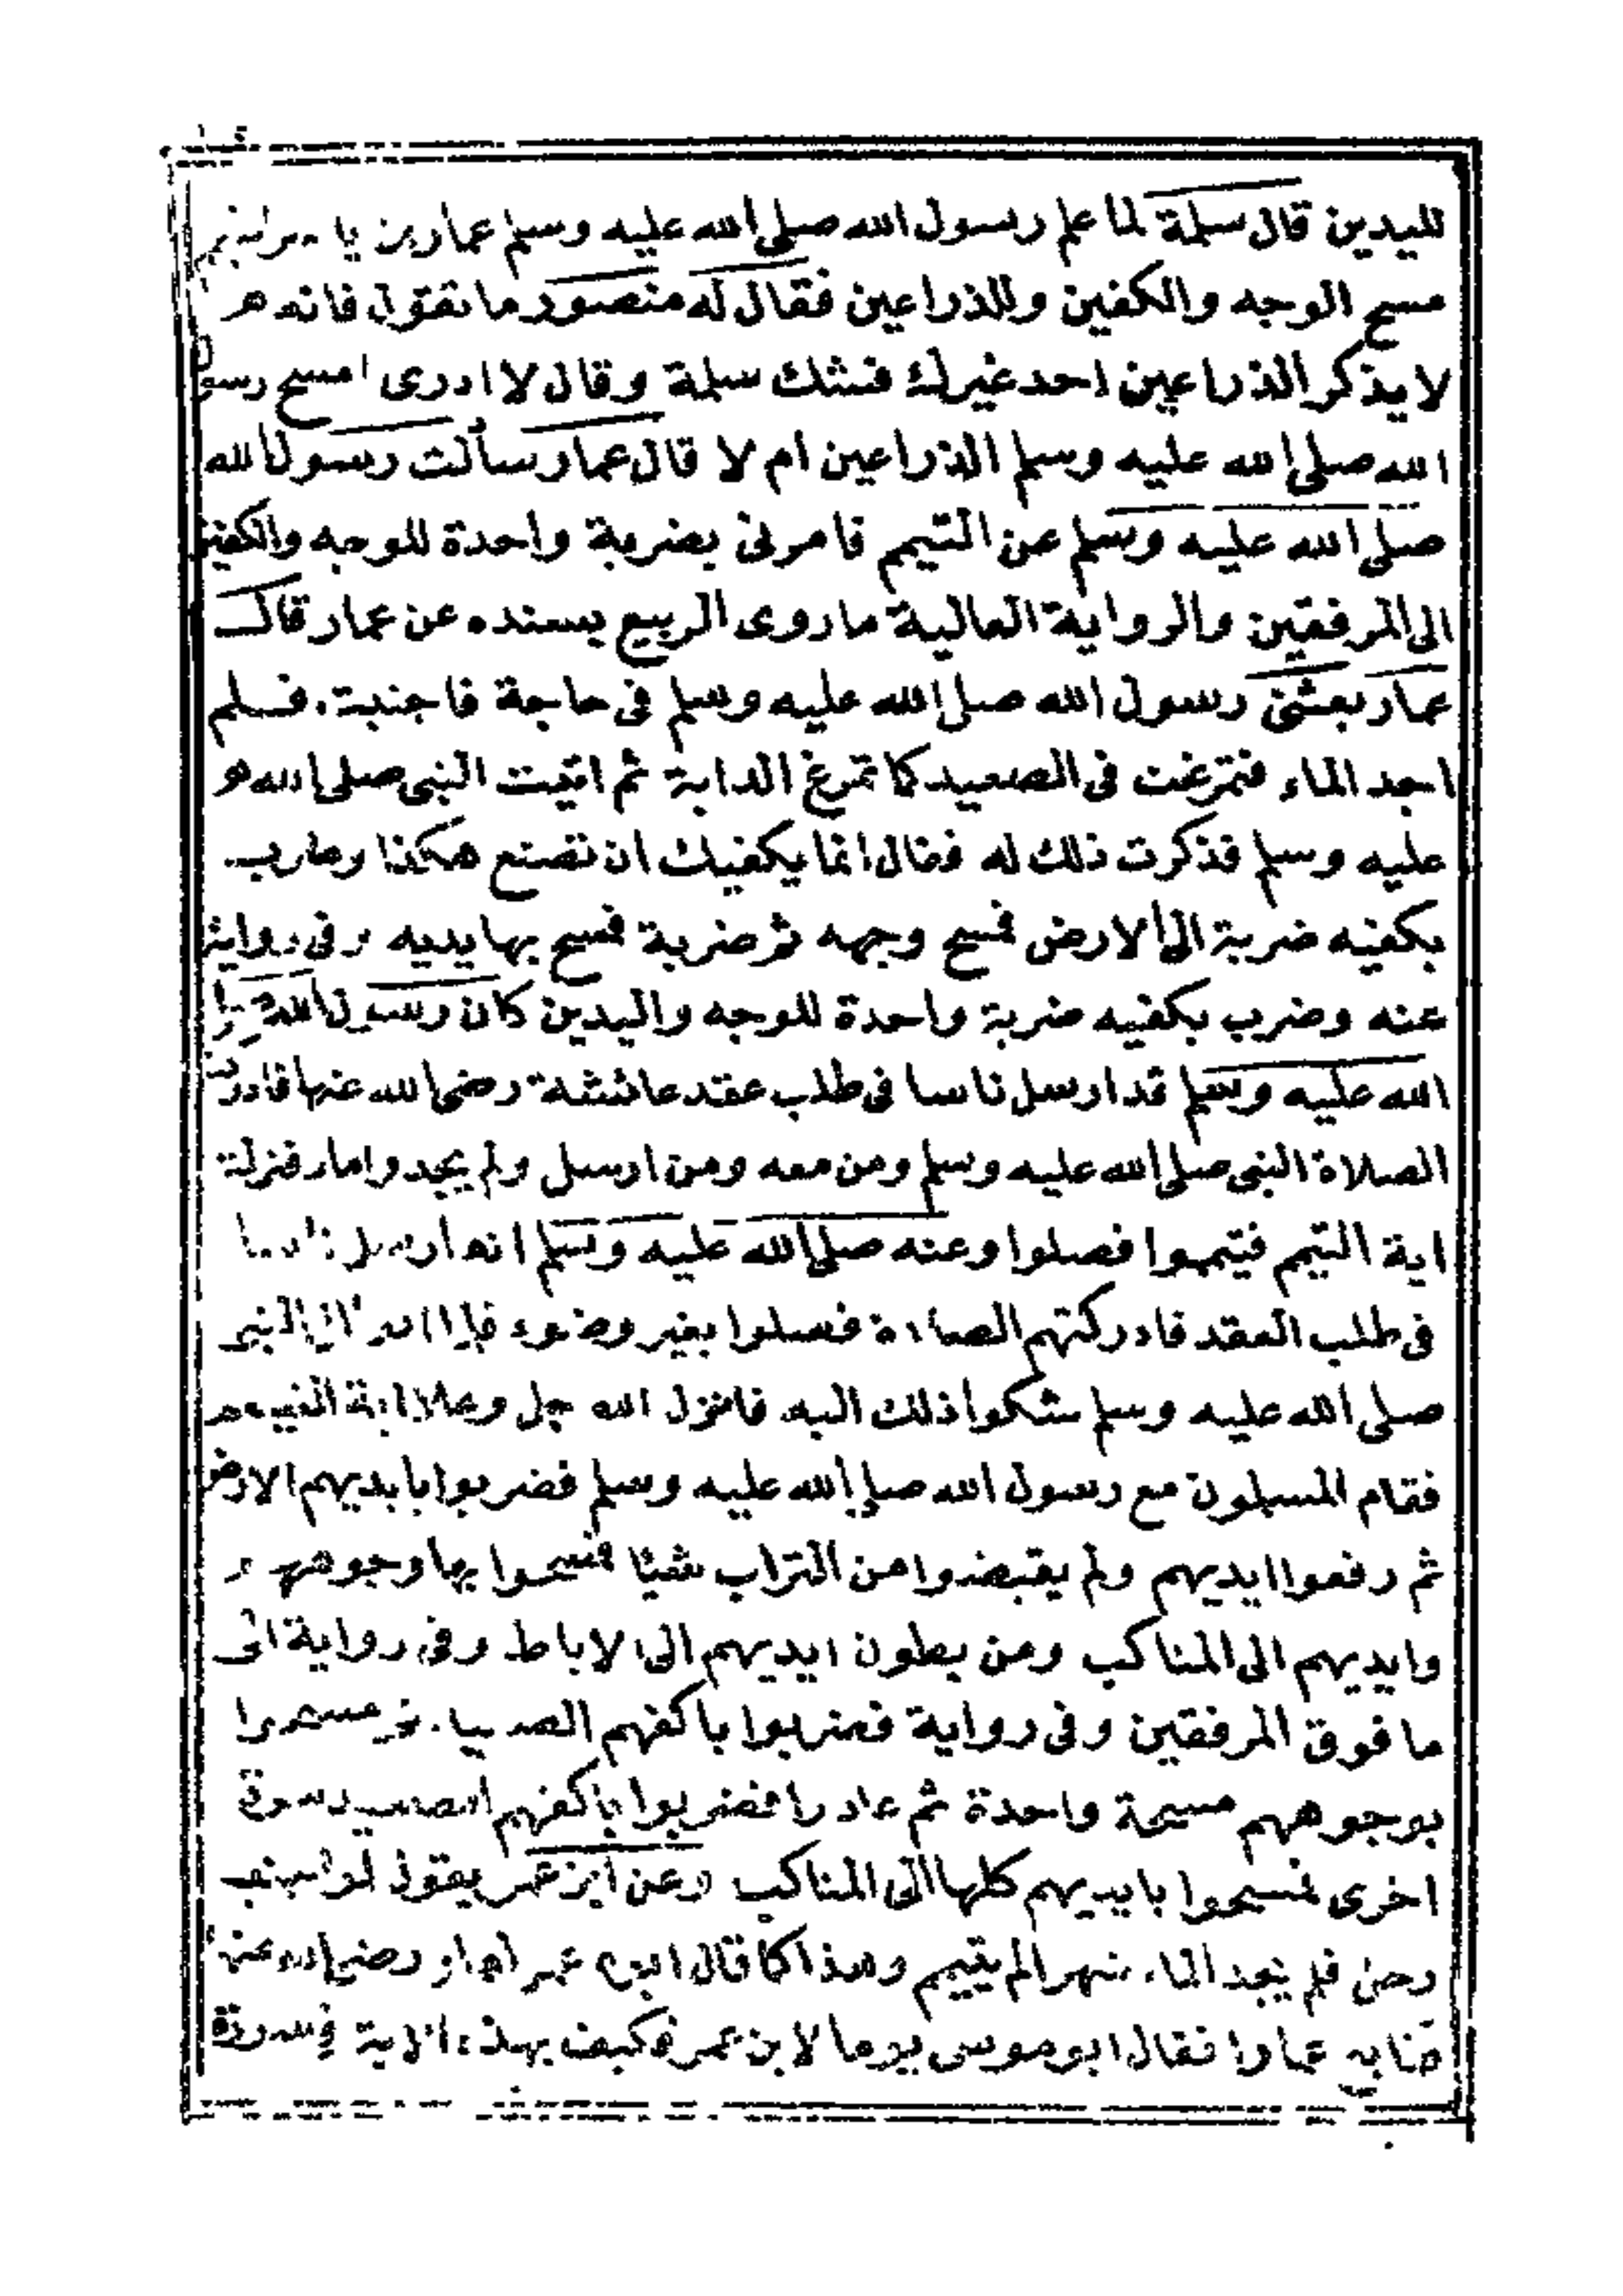 لليدين قال سلمة لما علم رسول الله صلى الله عليه وسلم عمار بن يا
مسح الوجه والكفين والذراعين فقال له منصور ما تقول فانه
لا يذكر الذراعين احد غيرك فشك سلمة وقال لا ادرى امسح رسول
الله صلى الله عليه وسلم الذراعين ام لا قال عمار سألت رسول الله
صلى الله عليه وسلم عن التيمم فامرنى بضربة واحدة للوجه والكفين
الى المرفقين والرواية العالية ما روى الربيع بسنده عن عمار قال
عمار بعثنى رسول الله صلى الله عليه وسلم فى حاجة فاجنبت فلم
اجد الماء فتمرغت فى الصعيد كما تمرغ الدابة ثم اتيت النبى صلى الله
عليه وسلم فذكرت ذلك له فقال انما يكفيك ان تصنع هكذا وضرب
بكفيه ضربة الى الارض فمسح وجهه ثم ضربة فمسح بها يديه وفى رواية
عنه وضرب بكفيه ضربة واحدة للوجه واليدين كان رسول الله
الله عليه وسلم قد ارسل ناسا فى طلب عقد عائشة رضى الله عنها
الصلاة النبى صلى الله عليه وسلم ومن معه ومن ارسل ولم يجدوا ماء فنزلة
اية التيمم فتيمموا فصلوا وعنه صلى الله عليه وسلم انه ارسل ناسا
فى طلب العقد فادركتهم الصلاة فصلوا بغير وضوء فلما النبى
صلى الله عليه وسلم شكوا ذلك اليه فانزل الله جل وعلا اية
فقام المسلمون مع رسول الله صلى الله عليه وسلم فضربوا بايديهم الارض
ثم رفعوا ايديهم ولم يقبضوا من التراب شيئا فمسحوا بها وجوههم
وايديهم الى المناكب ومن بطون ايديهم الى الاباط وفى رواية الى
ما فوق المرفقين وفى رواية فضربوا باكفهم الصعيد ثم مسحوا
بوجوههم مسحة واحدة ثم عادوا فضربوا باكفهم الصعيد مرة
اخرى فمسحوا بايديهم كلها الى المناكب وعن ابن عمر يقول لو
ومن فلم يجد الماء شهرا لم يتيمم وهذا كما قال ابن عمر رضى الله عنه
عمارا فقال ابو موسى يوما لابن عمر فكيف بهذه الاية